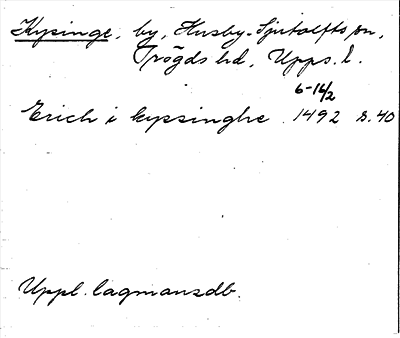 Kysinge, by, Husby-Sjutolfts sn,
Trögds hd, Upps. l.
6-16/2
Erich i kyssinghe 1492 s. 40
Uppl. lagmansdb.